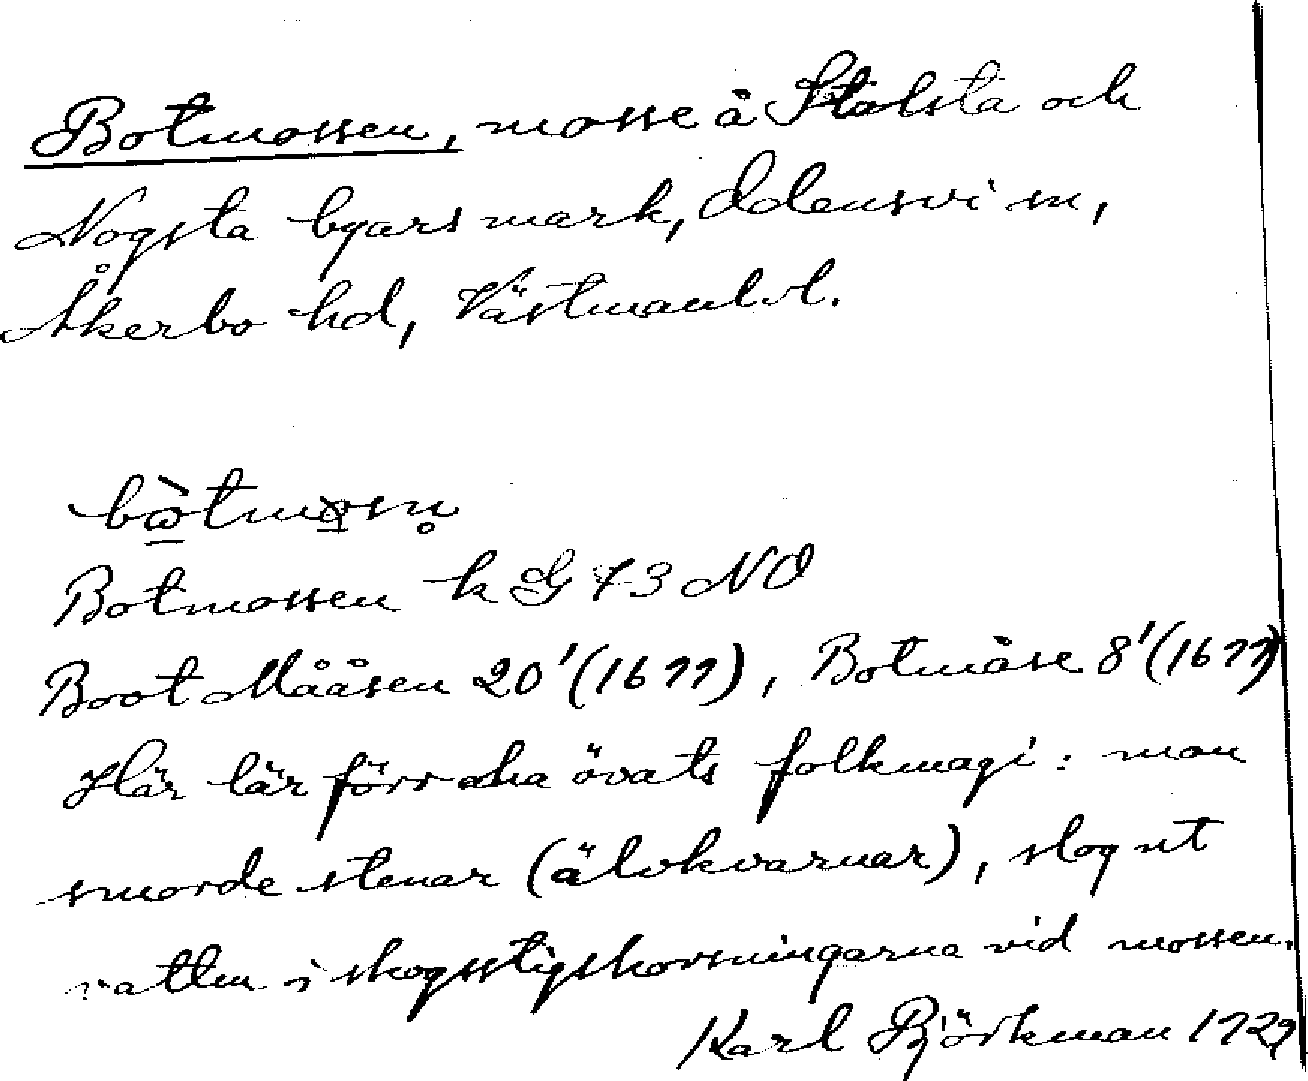 Botmossen, mosse å Stalsta och
Nogsta byars mark, Odensvi sn,
Åkerbo hd, Västmanl. l.
Botmossen k G 73 NO
Boot Mååsen 20' (1677), Botmåse 8' (1677)
Här lär förr ha övats folkmagi: man
smorde stenar (älvkvarnar), slog ut
vatten i skogsstigskorsningarna vid mossen.
Karl Björkman 1929